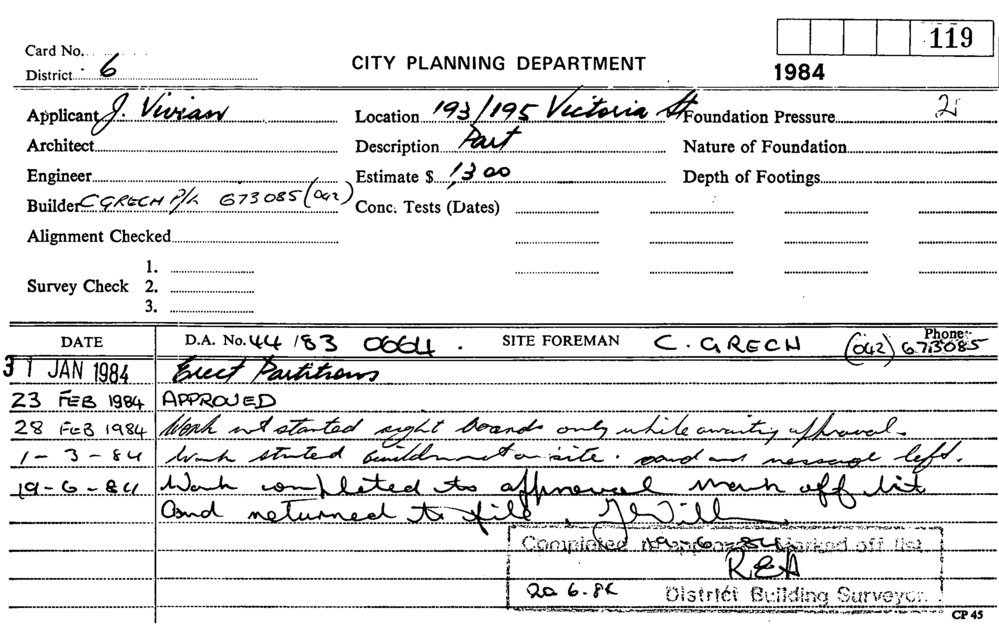 Card No. 119
District 6 CITY PLANNING DEPARTMENT 1984
Applicant J. Vivian Location 193/195 Victoria St Foundation Pressure 2
Architect Description Part Nature of Foundation
Engineer Estimate $ 1,300 Depth of Footings
Builder C GRECH P/L 673085 (042) Conc. Tests (Dates)
Alignment Checked
1.
Survey Check 2.
3.
DATE D.A. No. 44/83 0664. SITE FOREMAN C. GRECH Phone:- (042) 673085
31 JAN 1984 Erect Partitions
23 FEB 1984 APPROVED
28 FEB 1984 Work not started sight boards only while awaiting approval.
1-3-84 Work started on site. card and message left.
19-6-84 Work completed to approval mark off list
and returned to file.
Completed 19-6-84 Marked off list
REA
20 6.84 District Building Surveyor.
CP 45